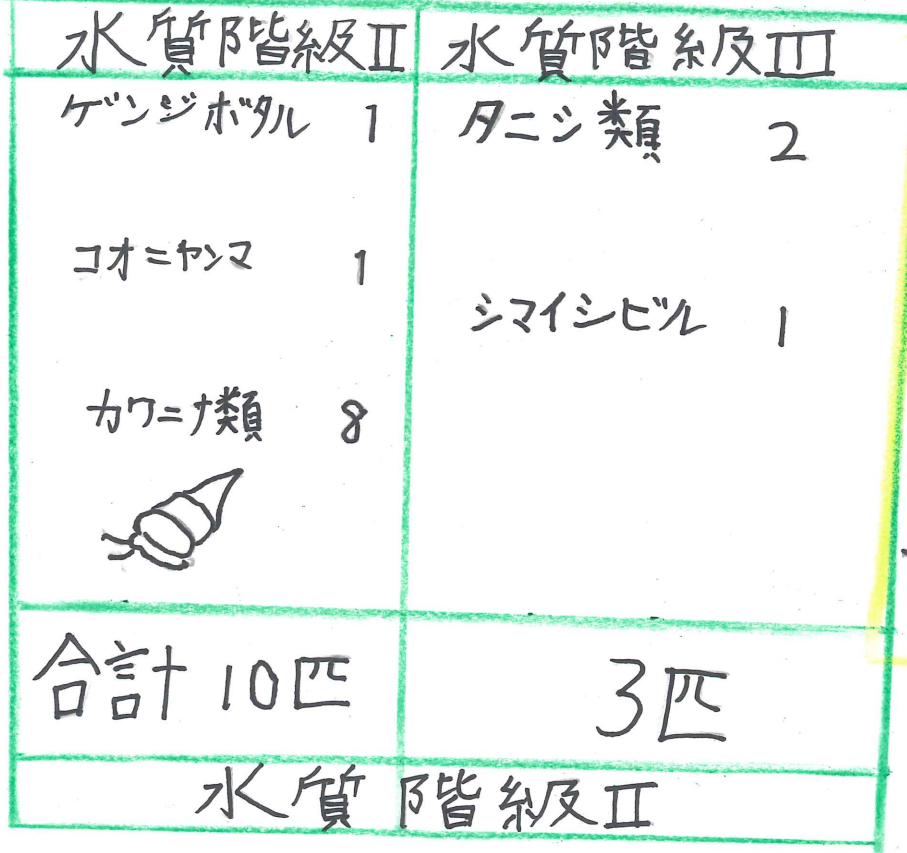 水質階級Ⅱ 水質階級Ⅲ
ゲンジボタル 1 タニシ類 2
コオニヤンマ 1
シマイシビル 1
カワニナ類 8
合計 10匹 3匹
水質階級Ⅱ